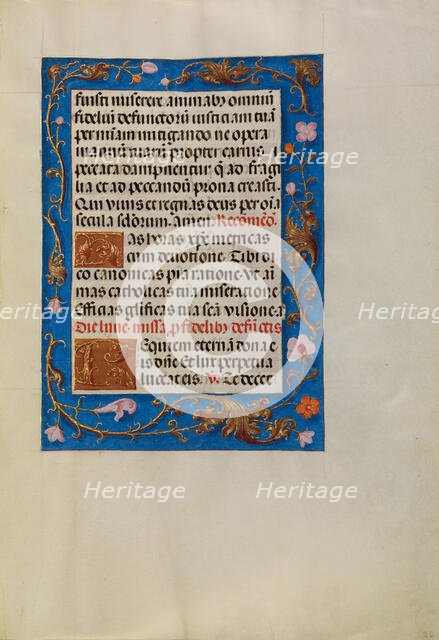 fuisti miserere animabꝫ omniū
fidelium defunctorū iusticiam tuā
per mīam mitigando ne opera
manuum tuarū propter carnis
peccata dampnentur qᷓ ad fragi
lia et ad peccandū prona creasti.
Qui viuis et regnas deus per oīa
secula sclorum. amen. Recomēdō.
as horas xp̄e
cum deuotione. Tibi di
co canonicas pia ratione. vt aī
mas catholicas tua miseratione
Efficias glificas tua seā visione. a
Die lune. missa. p̄ fidelibꝫ defūctis
Equiem eternā dona e
is dn̄e. Et lux perpetua
luceat eis. v̄. Te decet
Heritage
Heritage
Heritage
Heritage
Heritage
Heritage
Heritage